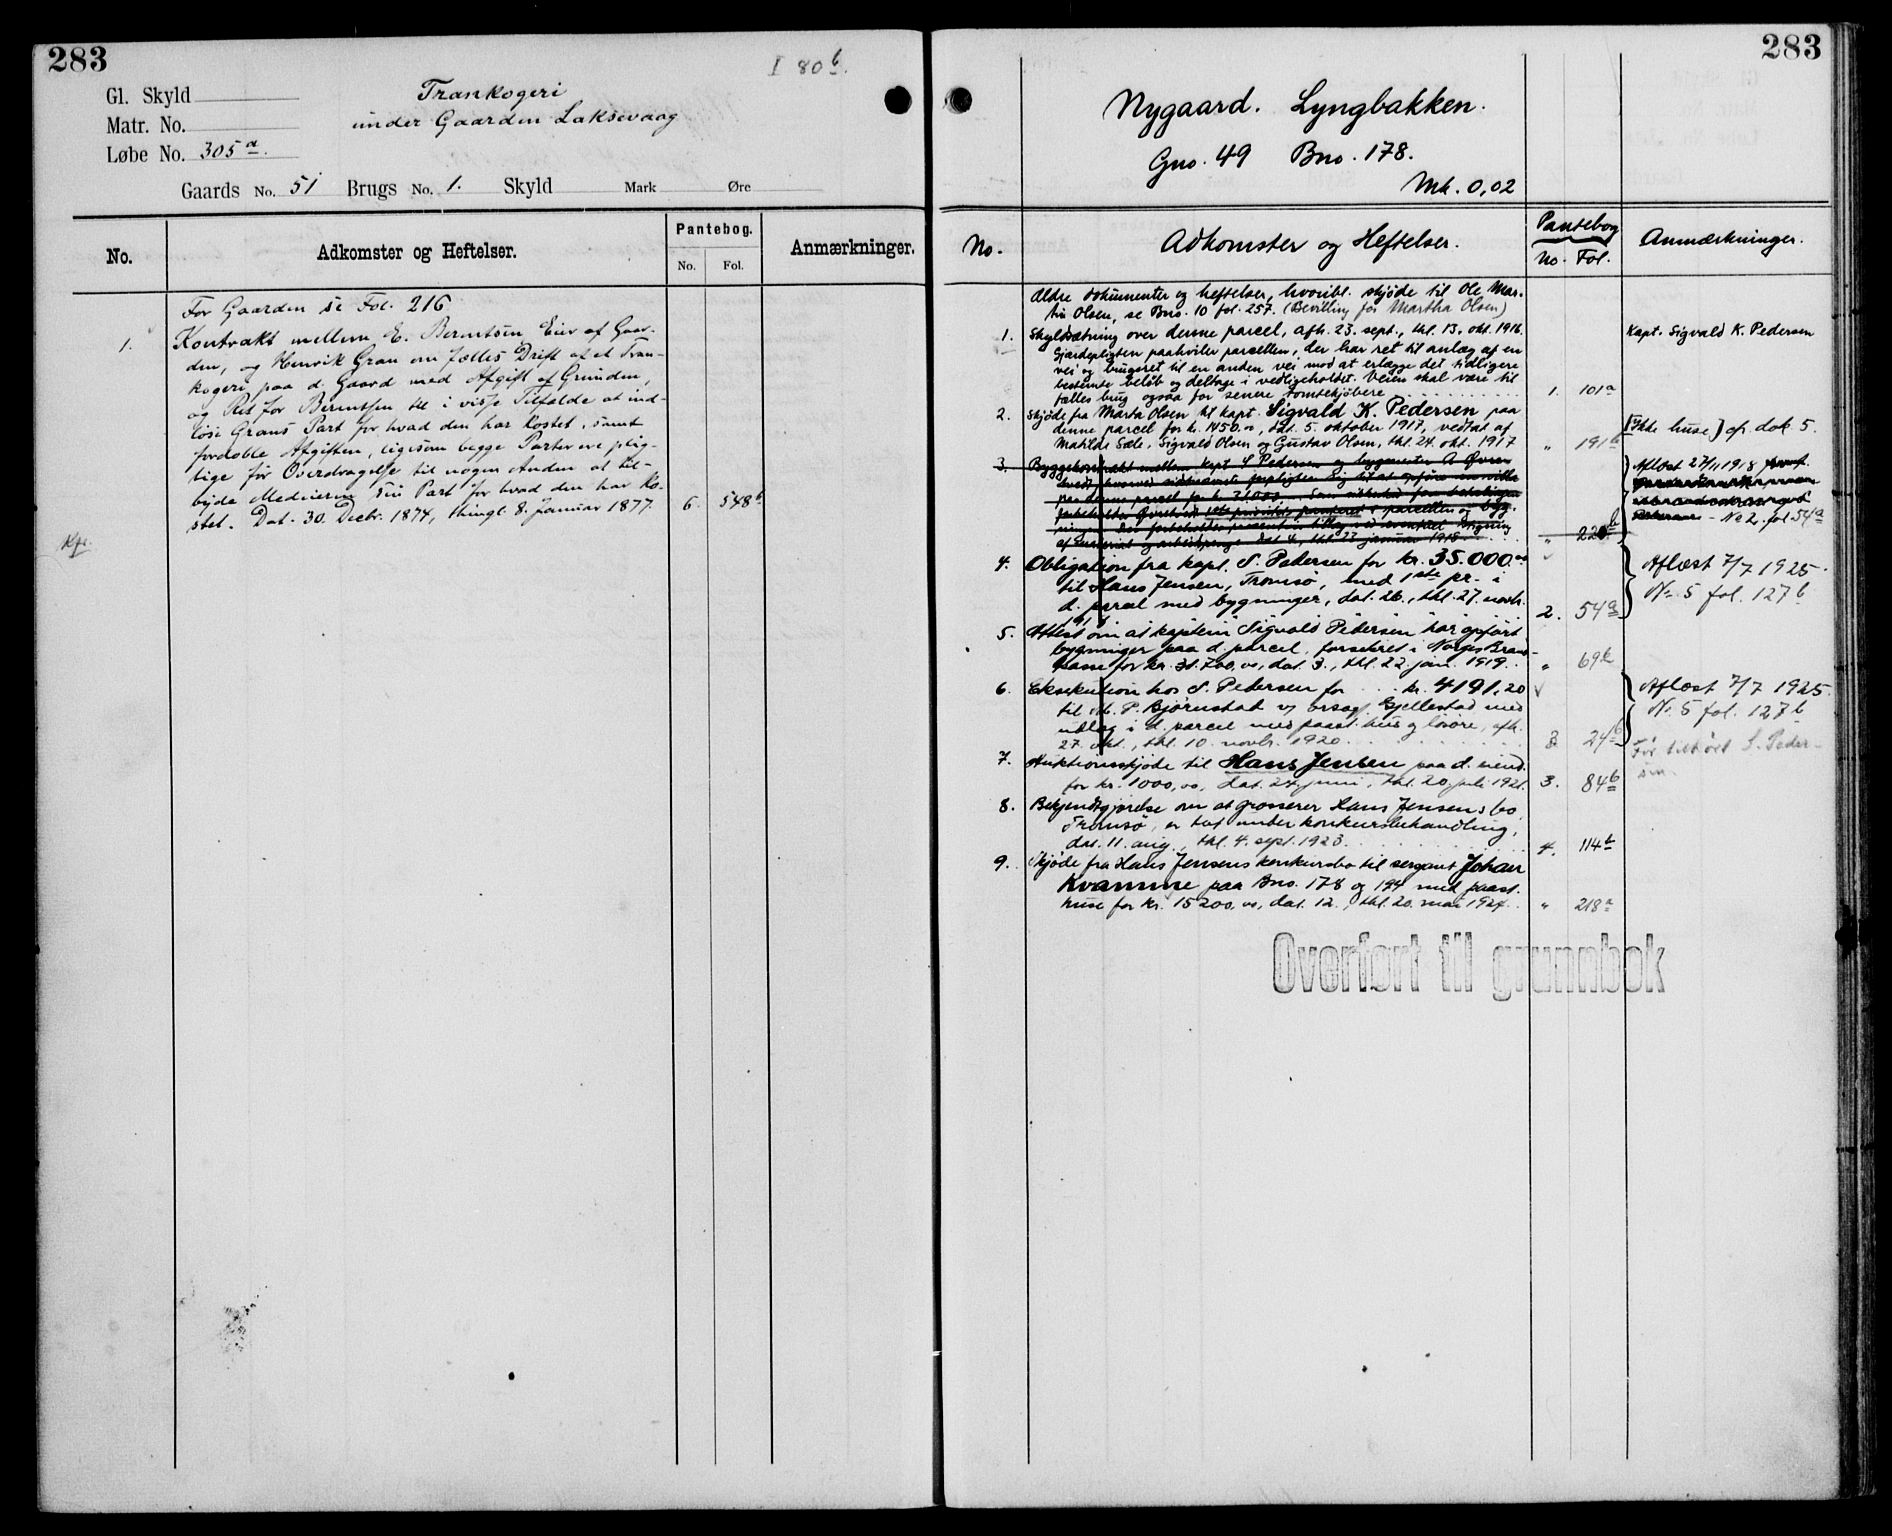 283
I 80 b.
Gl. Skyld
Trankogeri
Matr. No.
under Gaarden Laksevaag
Løbe No. 305 a.
Gaards No. 51 Brugs No. 1. Skyld Mark Øre
No. Adkomster og Heftelser. Pantebog. No. Fol. Anmærkninger.
For Gaarden se Fol. 216
1. Kontrakt mellem E. Berentsen Eier af Gaar-
den, og Henrik Gran om fælles Drift af et Tran-
kogeri paa d. Gaard med Afgift af Grunden,
og Ret for Berentsen til i visse Tilfælde at ind-
løse Grans Part for hvad den har kostet, samt
fordoble Afgiften, ligesom begge Parter ere plig-
tige før Overdragelse til nogen Anden at til-
byde Medeieren sin Part for hvad den har ko-
stet. Dat. 30. Decbr. 1874, thingl. 8. Januar 1877. 6. 548 b
283
Nygaard. Lyngbakken.
Gno. 49 Bno. 178.
Mk. 0,02
No. Adkomster og Heftelser. Pantebog No. Fol. Anmærkninger.
Ældre dokumenter og heftelser, hvoribl. skjøde til Ole Mar-
tin Olsen, se Bno. 10 fol. 257. (Bevilling for Martha Olsen)
1. Skyldsætning over denne parcel, afh. 23. sept., thl. 13. okt. 1916. Kapt. Sigvald K. Pedersen
Gjærdepligten paahviler parcellen, der har ret til anlæg af en
vei og brugsret til en anden vei mod at erlægge det tidligere
bestemte beløb og deltage i vedligeholdet. Veien skal være til
fælles brug ogsaa for senere tomtekjøbere 1. 101 a
2. Skjøde fra Marta Olsen til kapt. Sigvald K. Pedersen paa
denne parcel for kr. 1450.00, dat. 5. oktober 1917, vedtat af [Ikke huse] cfr. dok 5.
Matilde Sæle, Sigvald Olsen og Gustav Olsen, thl. 24. okt. 1917 " 191 b
3. Byggekontrakt mellem kapt. S. Pedersen og bygmester A. Øvre- Aflæst 27/11 1918
paa denne parcel for kr. 31.000
1ste prioritets panteret i parcellen og byg- - No 2, fol 54 a
thl. 23. januar 1918 " 220 b
4. Obligation fra kapt. S. Pedersen for kr. 35.000.00 Aflæst 7/7 1925.
til Hans Jensen, Tromsø, med 1ste pr. i No 5 fol. 127 b
d. parcel med bygninger, dat. 26., thl. 27. novbr.
1918 2. 54 a
5. Attest om at kaptein Sigvald Pedersen har opført
bygninger paa d. parcel, forsikret i Norges Brand-
kasse for kr. 31.700,00, dat. 3., thl. 22. jan. 1919. " 69 b
6. Eksekution hos S. Pedersen for kr. 4191,20 Aflæst 7/7 1925.
til M. P. Bjørnstad v/ orsag. Gjellestad med No 5 fol. 127 b
utlæg i d. parcel med paast. hus og løsøre, afh.
27. okt., thl. 10. novbr. 1920. 3. 24 b Før tilhørt S. Peder-
sen
7. Auktionsskjøde til Hans Jensen paa d. eiend.
for kr. 1000,00, dat. 24. juni, thl. 20. juli 1921. 3. 84 b
8. Bekjendtgjørelse om at grosserer Hans Jensens bo,
Tromsø, er tat under konkursbehandling,
dat. 11. aug., thl. 4. sept. 1923. 4. 114 b
9. Skjøde fra Hans Jensens konkursbo til sergeant Johan
Kvamme paa Bno. 178 og 194 med paast.
huse for kr. 15200,00, dat. 12., thl. 20. mai 1924. " 218 a
Overført til grunnbok